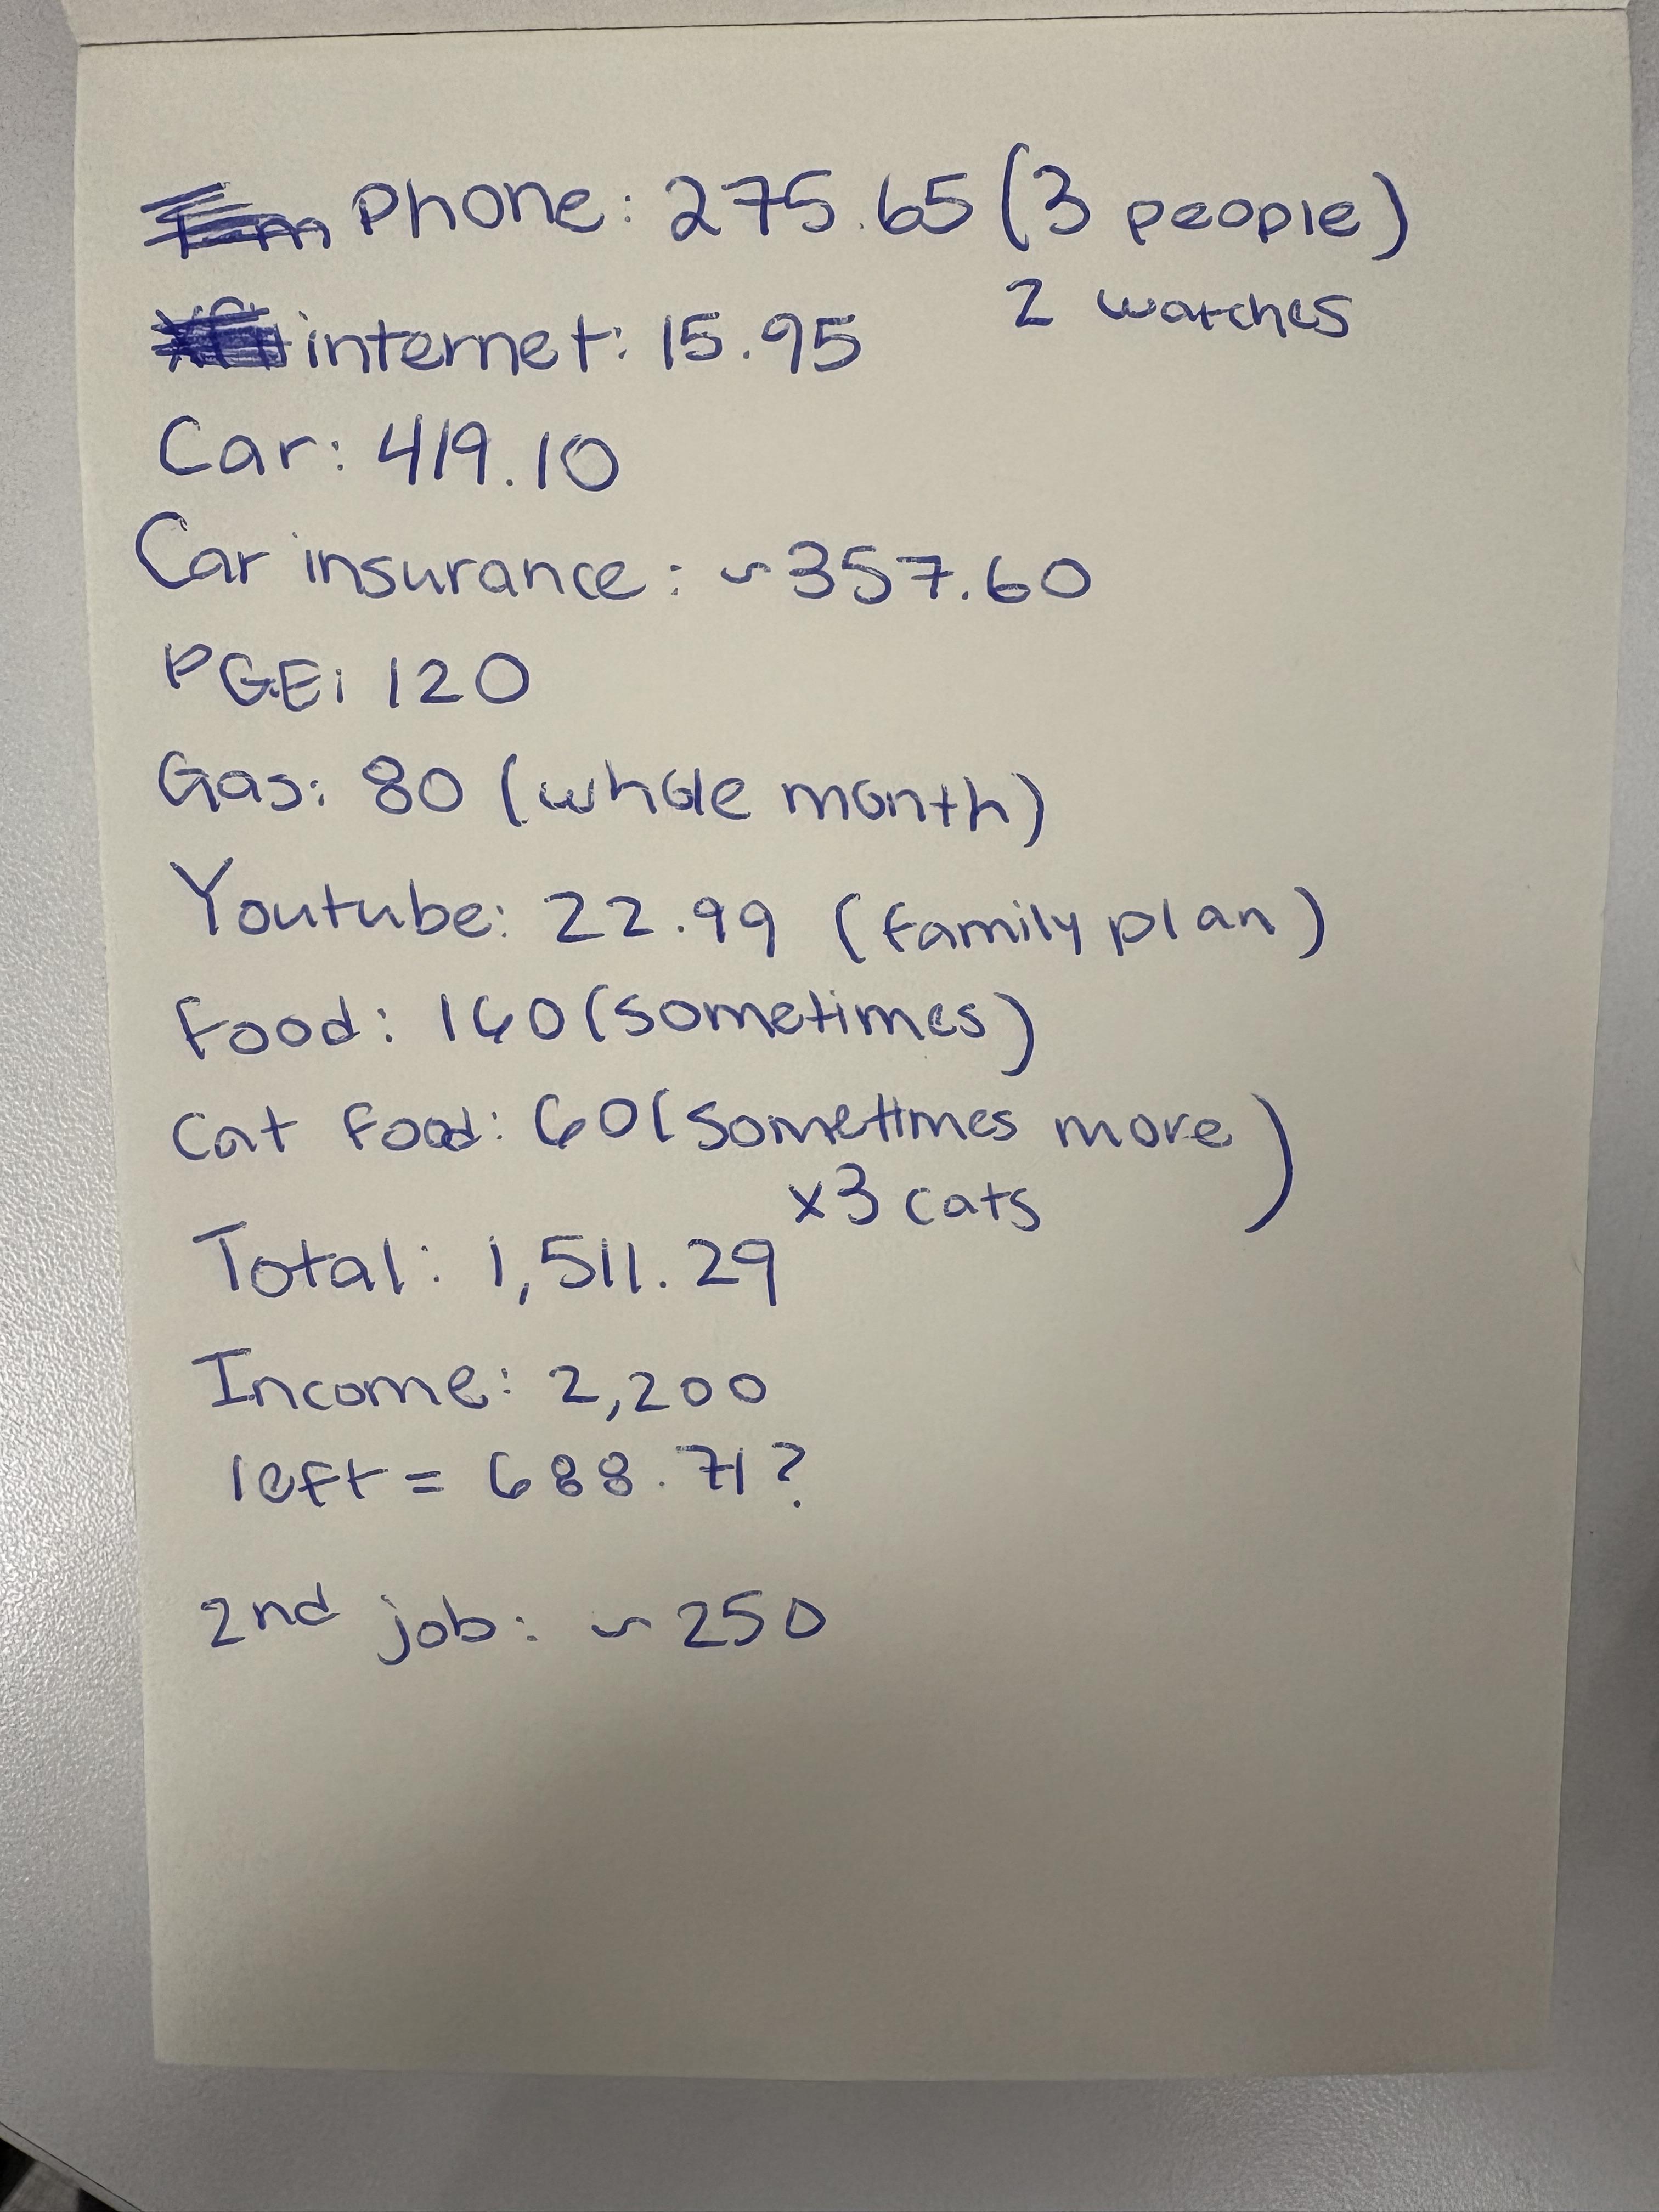 Phone: 275.65 (3 people)
2 watches
internet: 15.95
Car: 419.10
Car insurance: ~357.60
PGE: 120
Gas: 80 (whole month)
Youtube: 22.99 (family plan)
Food: 160 (sometimes)
Cat food: 60 (sometimes more
x3 cats)
Total: 1,511.29
Income: 2,200
left = 688.71?
2nd job: ~250